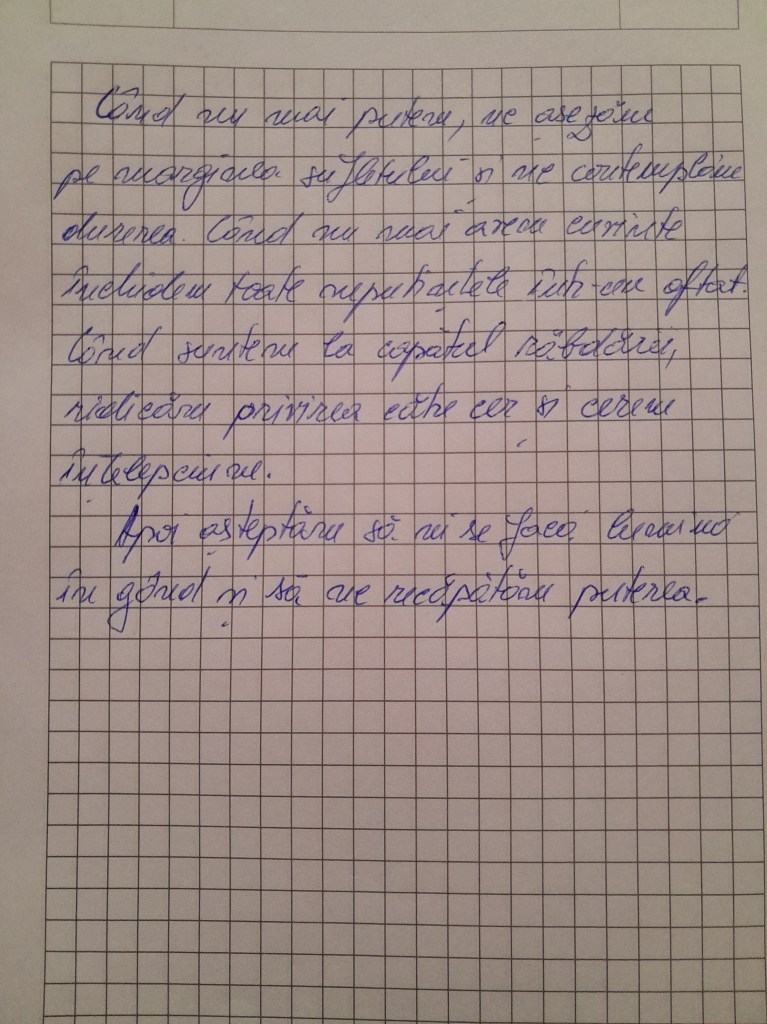 Când nu mai putem, ne așezăm
pe marginea sufletului și ne contemplăm
durerea. Când nu mai avem cuvinte
închidem toate neputințele într-un oftat.
Când suntem la capătul răbdării,
ridicăm privirea către cer și cerem
înțelepciune.
Apoi așteptăm să ni se facă lumină
în gând și să ne recăpătăm puterea.